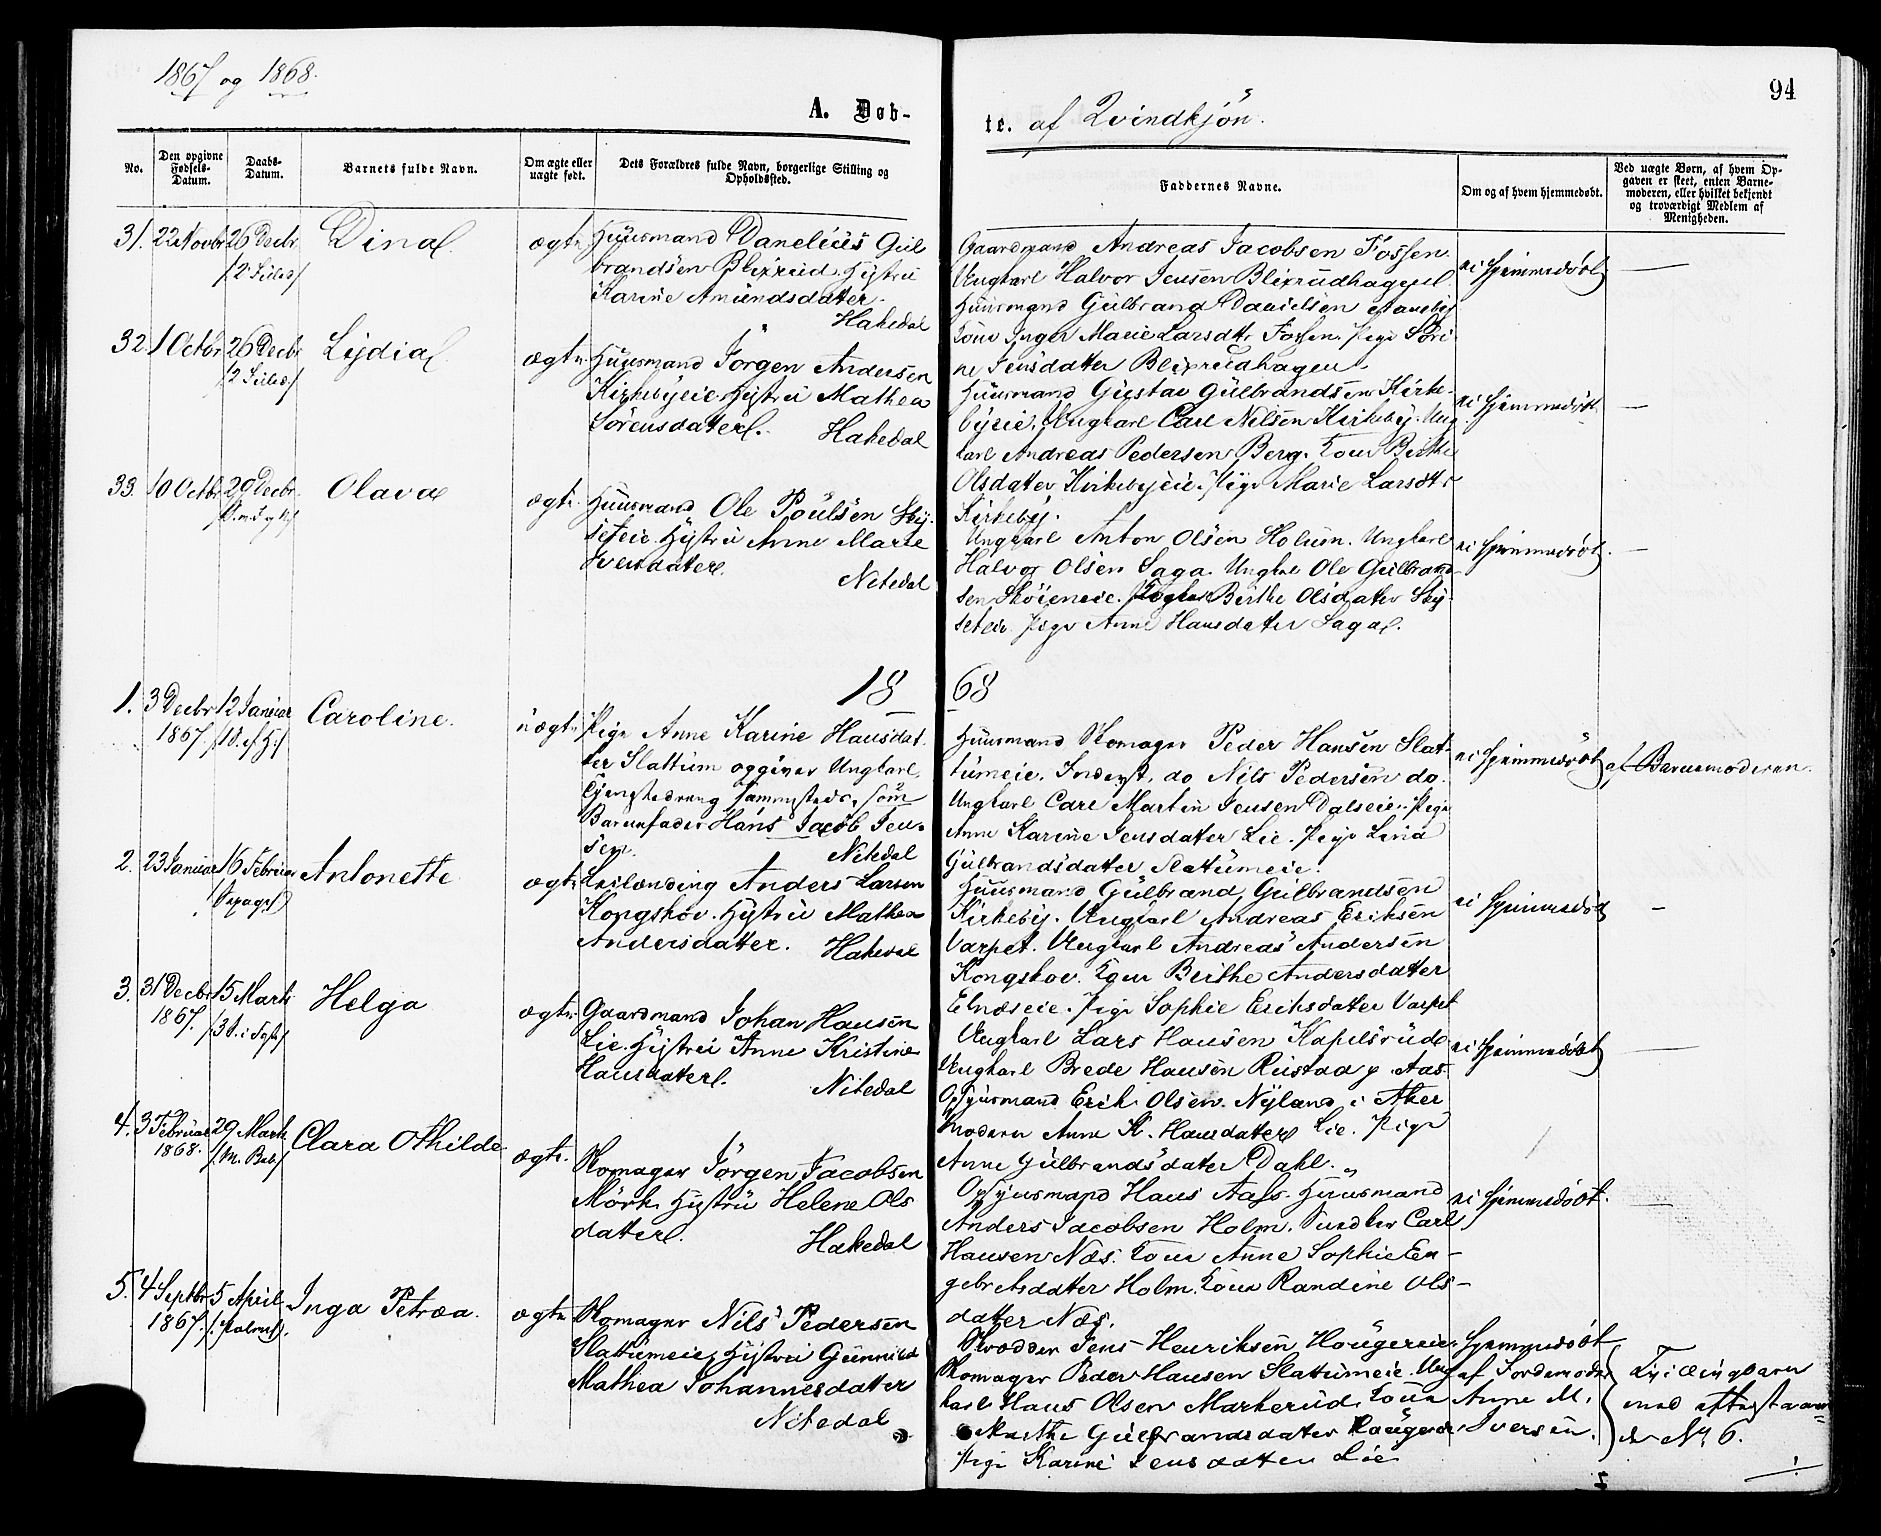 1867 og 1868.
94
A. Døb-
te. af Qvindkjön.
No.
Den opgivne Fødsels-Datum.
Daabs-Datum.
Barnets fulde Navn.
Om ægte eller uægte født.
Dets Forældres fulde Navn, borgerlige Stilling og Opholdssted.
Faddernes Navne.
Om og af hvem hjemmedøbt.
Ved uægte Børn, af hvem Opgaven er skeet, enten Barnemoderen, eller hvilket bekjendt og troværdigt Medlem af Menigheden.
31. 22 Novbr 26 Decbr Dina ægte
/2 Juled/
Huusmand Danelius Gul
brandsen Blixrud. Hustru
Karine Amundsdatter.
Hakedal
Gaardmand Andreas Jacobsen Fossen
Ungkarl Halvor Jensen Blixrudhagen
Huusmand Gulbrand Danielsen
Kone Inger Marie Larsdtr Fossen. Pige Söri-
ne Jensdatter Blixrudhagen.
ei Hjemmedöbt
32 1 Octbr 26 Decbr Lydia ægte
/2 Juled/
Huusmand Jörgen Andersen
Kirkebyeie. Hustru Mathea
Sörensdatter. Hakedal
Huusmand Gustav Gulbrandsen Kirke-
byeie. Ungkarl Carl Nilsen Kirkeby. Ung
karl Andreas Pedersen Berg. Kone Berthe
Olsdatter Kirkebyeie. Pige Marie Larsdtr
Kirkeby.
ei Hjemmedöbt
33. 10 Octbr 29 Decbr Olava ægte
Huusmand Ole Poulsen Sky-
seteie. Hustru Anne Marie
Iversdatter.
Nitedal
Ungkarl Anton Olsen Holum. Ungkarl
Halvor Olsen Saga. Ungkarl Ole Gulbrand-
sen Skøieneie. Berthe Olsdatter Sky-
seteie. Pige Anne Hansdatter Saga.
ei Hjemmedöbt.
18 68
1. 3 Decbr 12 Januar Caroline. uægte
1867. /1 S. ef. H:/
Pige Anne Karine Hansdat-
ter Slattum opgiver Ungkarl,
Tjenestedreng sammesteds, som
Barnefader Hans Jacob Jen-
sen. Nitedal
Huusmand Skomager Peder Hansen Slat-
tumeie. Inderst, do Nils Pedersen do.
Ungkarl Carl Martin Jensen Dalseie. Pige
Anne Karine Jensdatter Lie. Pige Lina
Gulbrandsdatter Slattumeie.
ei Hjemmedöbt
af Barnemoderen.
2. 23 Januar 16 Februar Antonette ægte
Leilænding Anders Larsen
Kongskov. Hustru Mathea
Andersdatter. Hakedal
Huusmand Gulbrand Gulbrandsen
Kirkeby. Ungkarl Andreas Eriksen
Varpet. Ungkarl Andreas Andersen
Kongskov. Kone Berthe Andersdatter
Elnæseie. Pige Sophie Eriksdatter Varpet
ei Hjemmedöbt
3. 31 Decbr 15 Marts Helga ægte
1867. /3 S. i Faste/
Gaardmand Johan Hansen
Lie. Hustru Anne Kristine
Hansdatter.
Nitedal
Ungkarl Lars Hansen Kapelsrud
Ungkarl Brede Hansen Rustad p. Aas
Opsynsmand Erik Olsen. Nyland i Aker
Moderen Anne K. Hansdatter Lie. Pige
Anne Gulbrandsdatter Dahl.
ei Hjemmedöbt
4. 3 Februar 29 Marts Clara Othilde. ægte.
1868. /M. Beb/
Skomager Jörgen Jacobsen
Mörk. Hustru Helene Ols
datter.
Hakedal
Opsynsmand Hans Aass. Huusmand
Anders Jacobsen Holm. Snedker Carl
Hansen Næs. Kone Anne Sophie En-
gebretsdatter Holm. Kone Randine Ols-
datter Næs.
ei Hjemmedöbt.
5. 4 Septbr 5 April Inga Petræa. ægte
1867. /Palmes/.
Skomager Nils Pedersen
Slattumeie, Hustru Gunnild
Mathea Johannesdatter
Nitedal
Skrædder Jens Henriksen Haugereie.
Skomager Peder Hansen Slattumeie. Ung
karl Hans Olsen Markerud. Kone
Marthe Gulbrandsdatter Haugereie
Pige Karine Jensdatter Lie
Hjemmedöbt
af Jordemoder
Anne M.
Iversen.
Tvillingbarn
med
No 6.